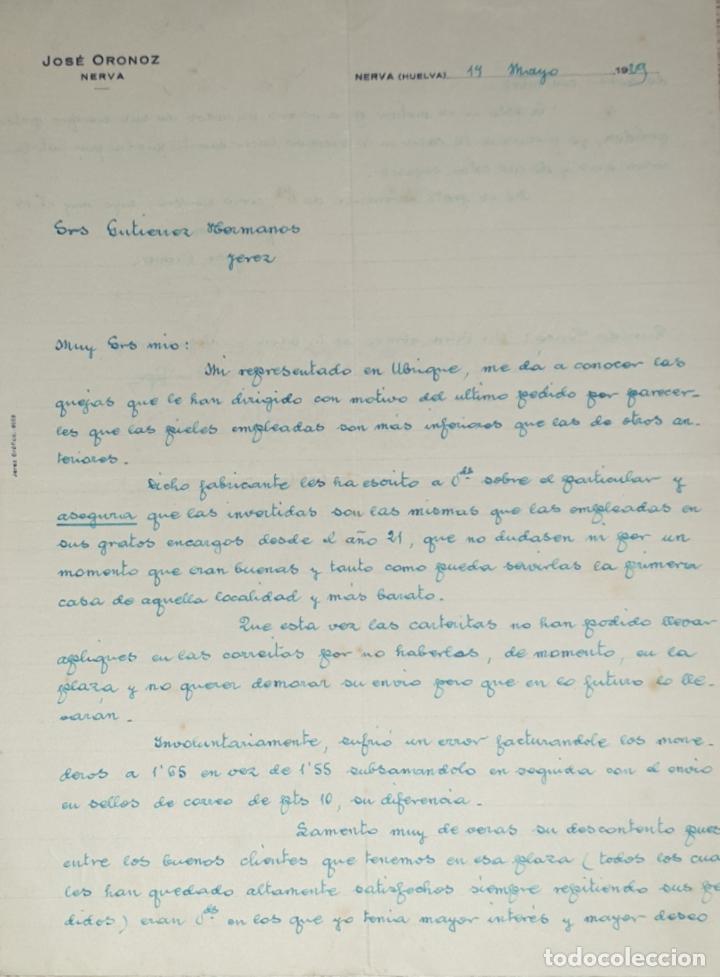 JOSÉ ORONOZ
NERVA
NERVA (HUELVA) 14 Mayo 1929
Srs Gutierrez Hermanos
Jerez
Muy Srs mio:
Mi representado en Ubrique, me dá a conocer las
quejas que le han dirigido con motivo del ultimo pedido por parecer-
les que las pieles empleadas son más inferiores que las de otros an-
teriores.
Dicho fabricante les ha escrito a Uds sobre el particular y
asegura que las invertidas son las mismas que las empleadas en
sus gratos encargos desde el año 21, que no dudasen ni por un
momento que eran buenas y tanto como pueda servirlas la primera
casa de aquella localidad y más barato.
Que esta vez las carteritas no han podido llevar
apliques en las correitas por no haberlos, de momento, en la
plaza y no querer demorar su envio pero que en lo futuro lo lle-
varán.
Involuntariamente, sufrió un error facturandole los mone-
deros a 1'65 en vez de 1'55 subsanandolo en seguida con el envio
en sellos de correo de pts 10, su diferencia.
Lamento muy de veras su descontento pues
entre los buenos clientes que tenemos en esa plaza (todos los cua
les han quedado altamente satisfechos siempre repitiendo sus pe
didos) eran Uds en los que yo tenia mayor interés y mayor deseo
Jerez Gráfico.
todocoleccion